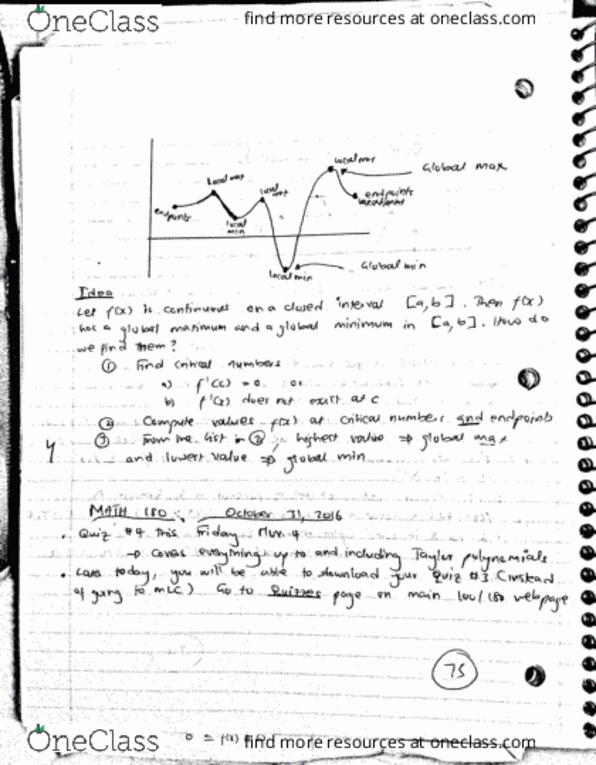 OneClass
find more resources at oneclass.com
local max
Global max
local max
local max
endpoints
endpoints
local min
local min
Global min
Idea
Let f(x) is continuous on a closed interval [a,b]. Then f(x)
has a global maximum and a global minimum in [a,b]. How do
we find them?
① Find critical numbers
a) f'(c) = 0 or
b) f'(x) does not exist at c
② Compute values f(x) at critical numbers and endpoints
③ From the list in ②, highest value ⇒ global max
and lowest value ⇒ global min
4
MATH 180 October 31, 2016
• Quiz #4 this Friday Nov. 4
→ covers everything up to and including Taylor polynomials
• Later today, you will be able to download your Quiz #3 (instead
of going to MLC) Go to Quizzes page on main 100/180 webpage
75
OneClass
find more resources at oneclass.com